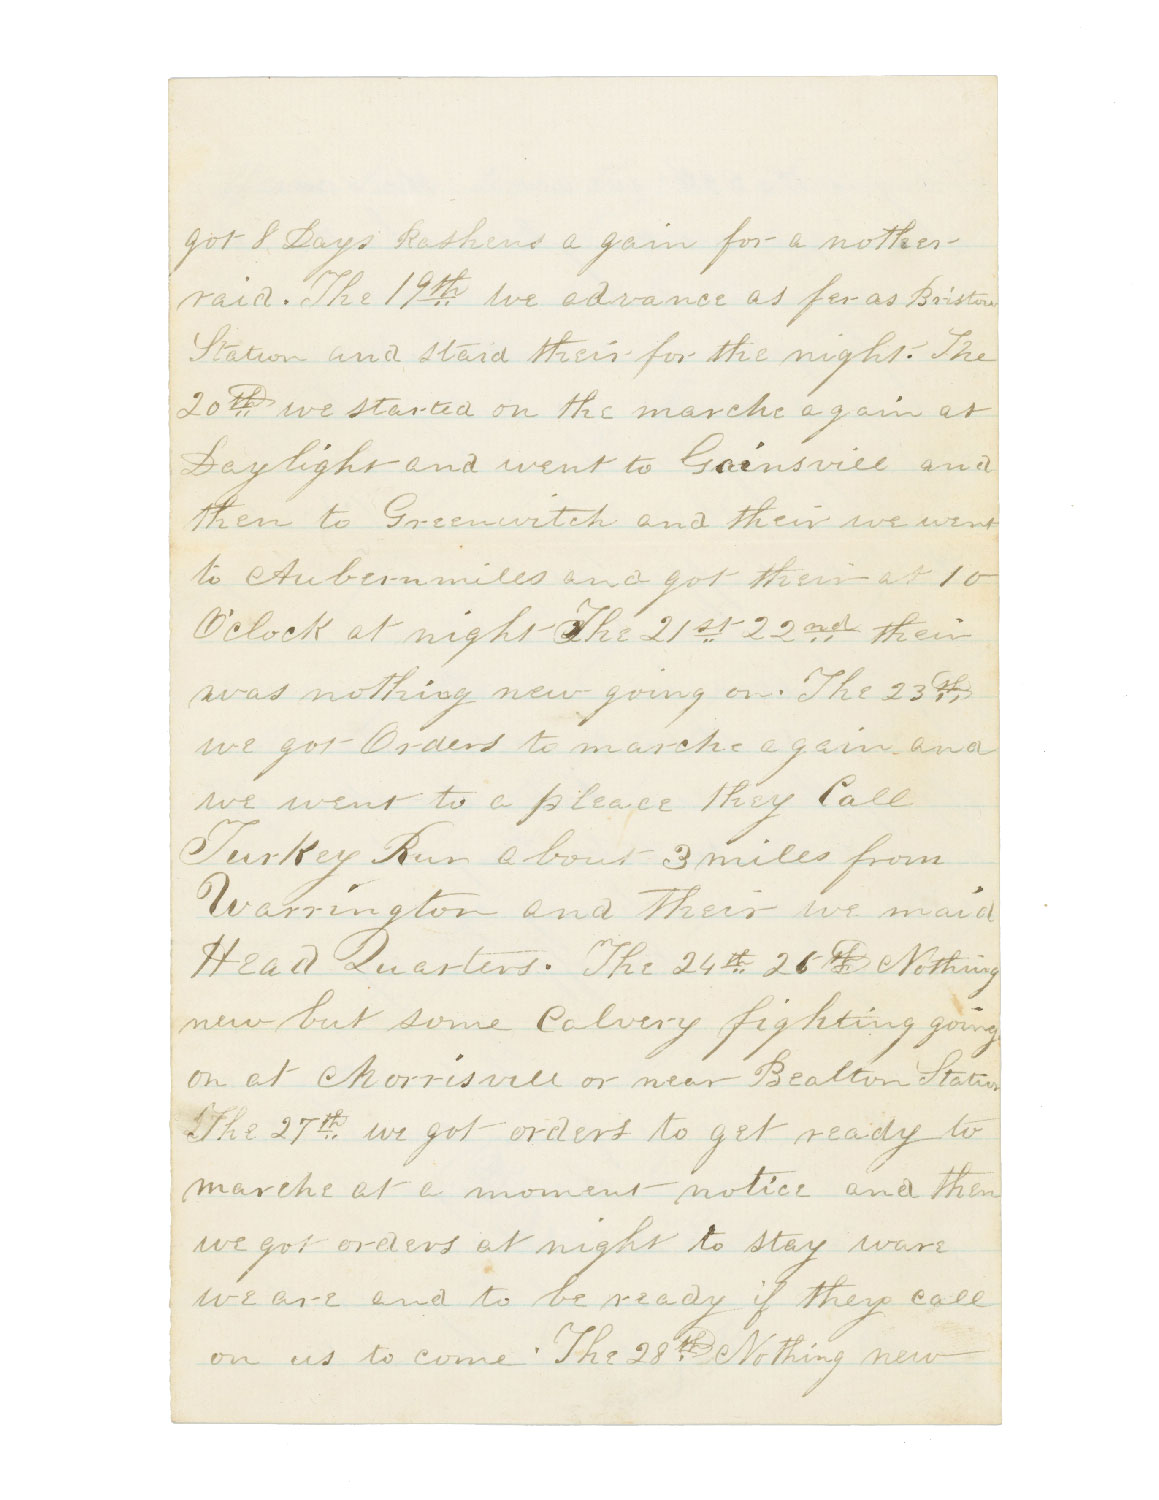 got 8 Days Rashens a gain for a nother
raid. The 19th we advance as fer as Bristow
Station and staid their for the night. The
20th we started on the marche again at
Daylight and went to Gainsvill and
then to Greenwitch and their we went
to Aubernmiles and got their at 10
O'clock at night The 21st 22nd their
was nothing new going on. The 23th
we got Orders to marche again and
we went to a pleace they Call
Turkey Run about 3 miles from
Warrington and their we maid
Head Quarters. The 24th 26th Nothing
new but some Calvery fighting going
on at Morrisvill or near Bealton Station
The 27th we got orders to get ready to
marche at a moment notice and then
we got orders at night to stay ware
we are and to be ready if they call
on us to come. The 28th Nothing new